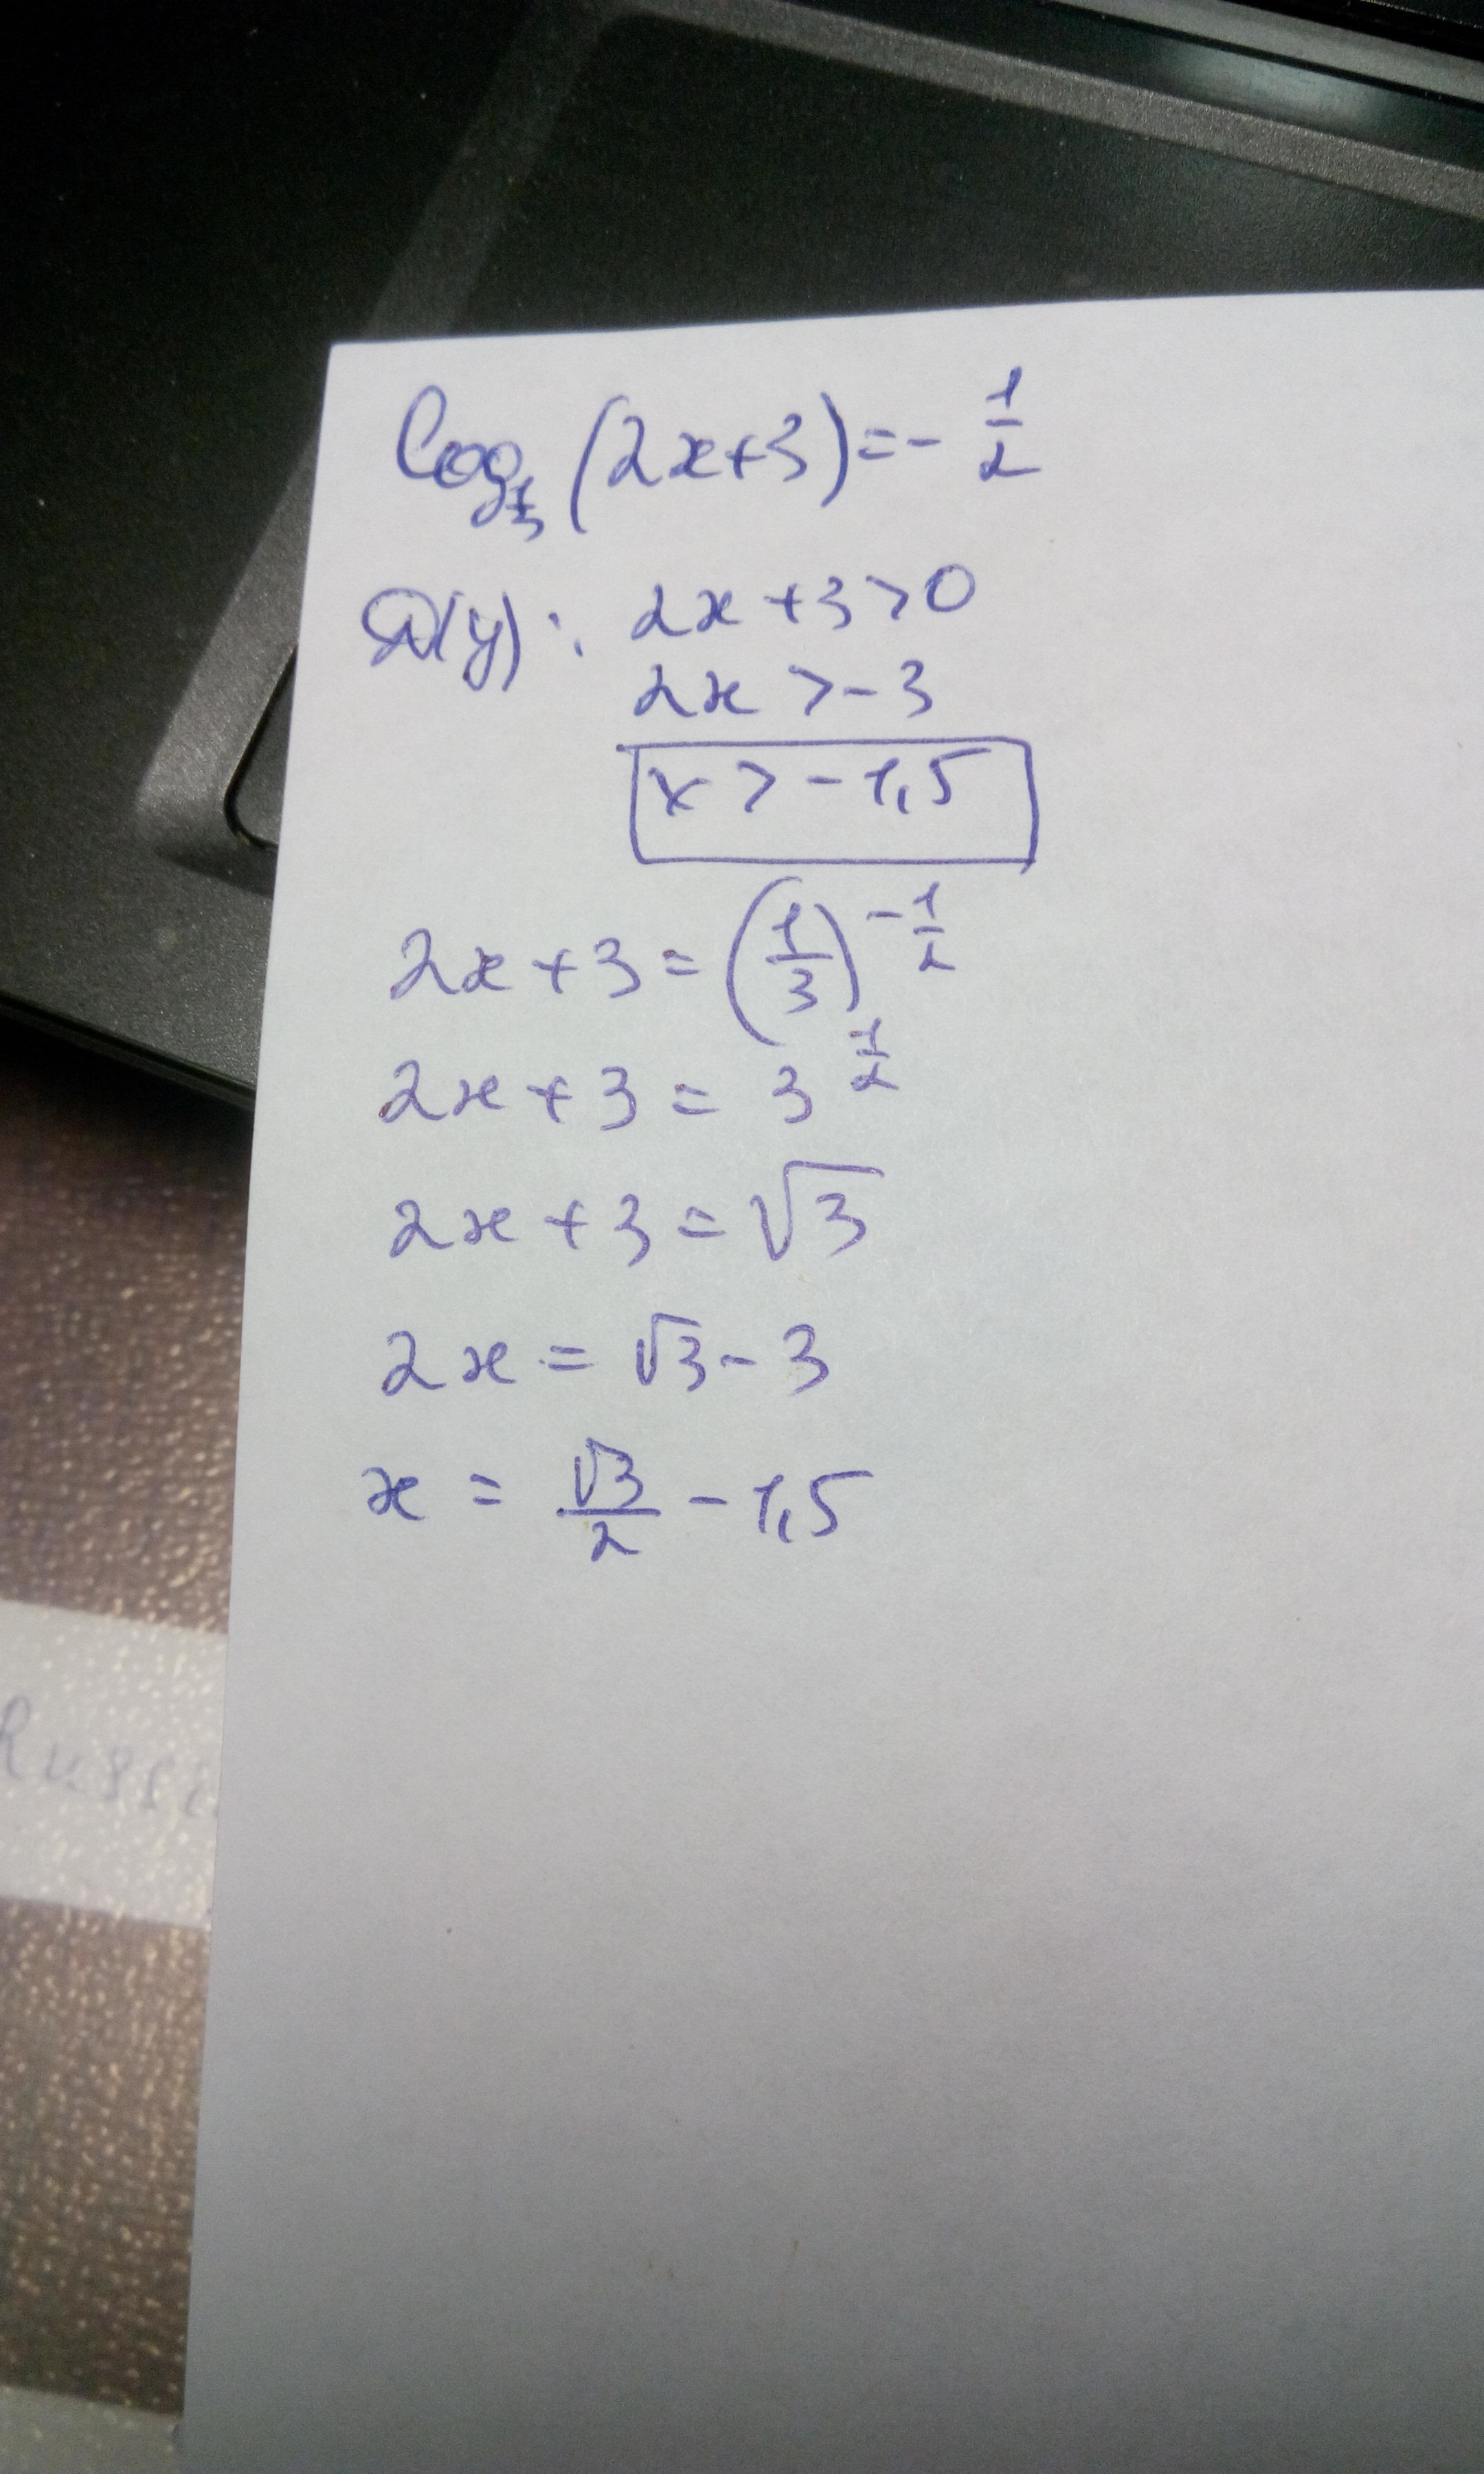 log_{1/3} (2x+3) = - 1/2
D(y): 2x + 3 > 0
2x > - 3
x > - 1,5
2x + 3 = (1/3)^{-1/2}
2x + 3 = 3^{1/2}
2x + 3 = √3
2x = √3 - 3
x = √3/2 - 1,5